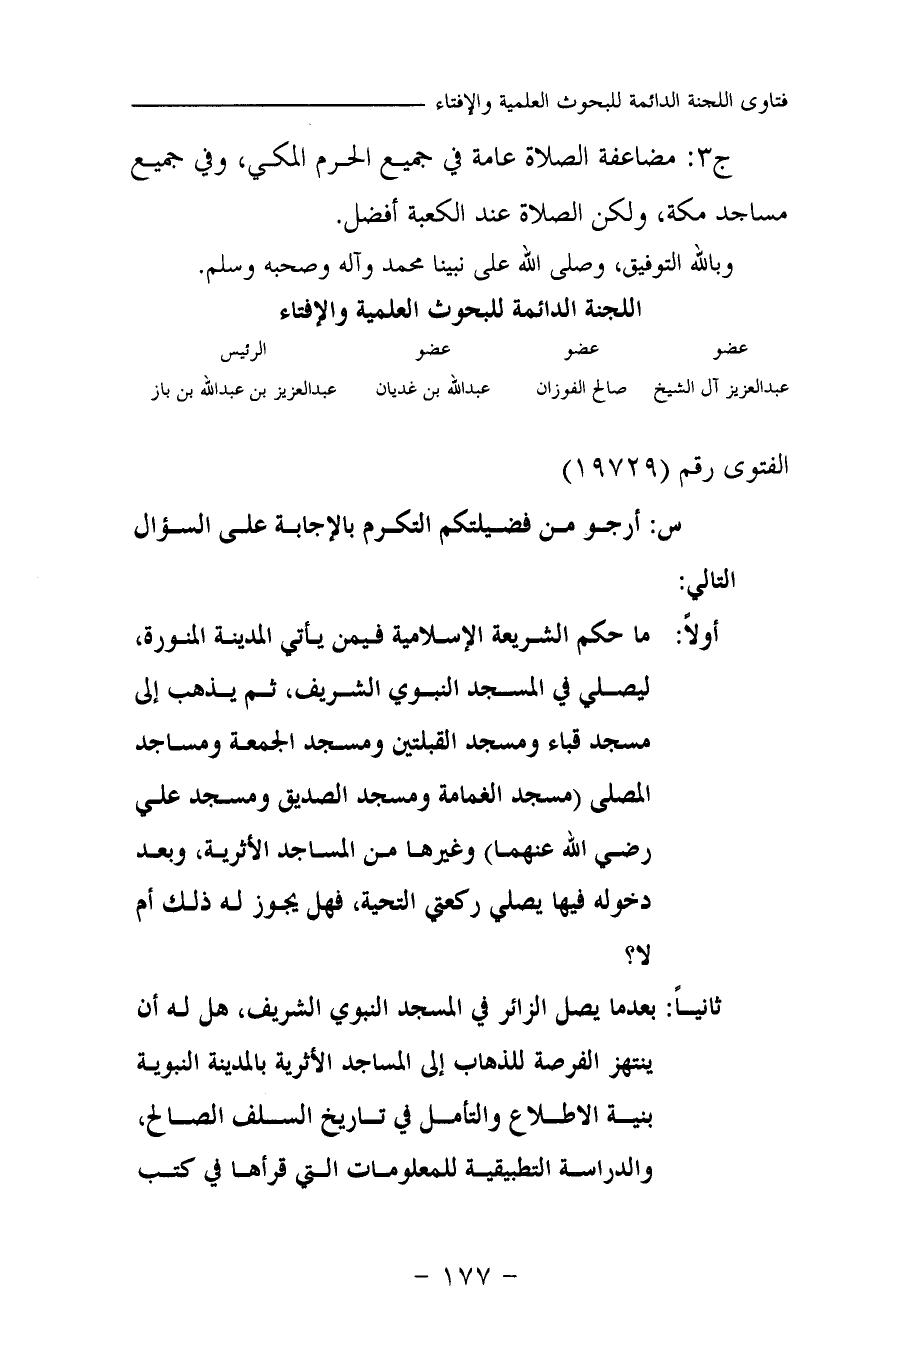 فتاوى اللجنة الدائمة للبحوث العلمية والإفتاء
ج٣: مضاعفة الصلاة عامة في جميع الحرم المكي، وفي جميع
مساجد مكة، ولكن الصلاة عند الكعبة أفضل.
وبالله التوفيق، وصلى الله على نبينا محمد وآله وصحبه وسلم.
اللجنة الدائمة للبحوث العلمية والإفتاء
عضو عضو عضو الرئيس
عبدالعزيز آل الشيخ صالح الفوزان عبدالله بن غديان عبدالعزيز بن عبدالله بن باز
الفتوى رقم (١٩٧٢٩)
س: أرجو من فضيلتكم التكرم بالإجابة على السؤال
التالي:
أولاً: ما حكم الشريعة الإسلامية فيمن يأتي المدينة المنورة،
ليصلي في المسجد النبوي الشريف، ثم يذهب إلى
مسجد قباء ومسجد القبلتين ومسجد الجمعة ومساجد
المصلى (مسجد الغمامة ومسجد الصديق ومسجد علي
رضي الله عنهما) وغيرها من المساجد الأثرية، وبعد
دخوله فيها يصلي ركعتي التحية، فهل يجوز له ذلك أم
لا؟
ثانياً: بعدما يصل الزائر في المسجد النبوي الشريف، هل له أن
ينتهز الفرصة للذهاب إلى المساجد الأثرية بالمدينة النبوية
بنية الاطلاع والتأمل في تاريخ السلف الصالح،
والدراسة التطبيقية للمعلومات التي قرأها في كتب
- ١٧٧ -